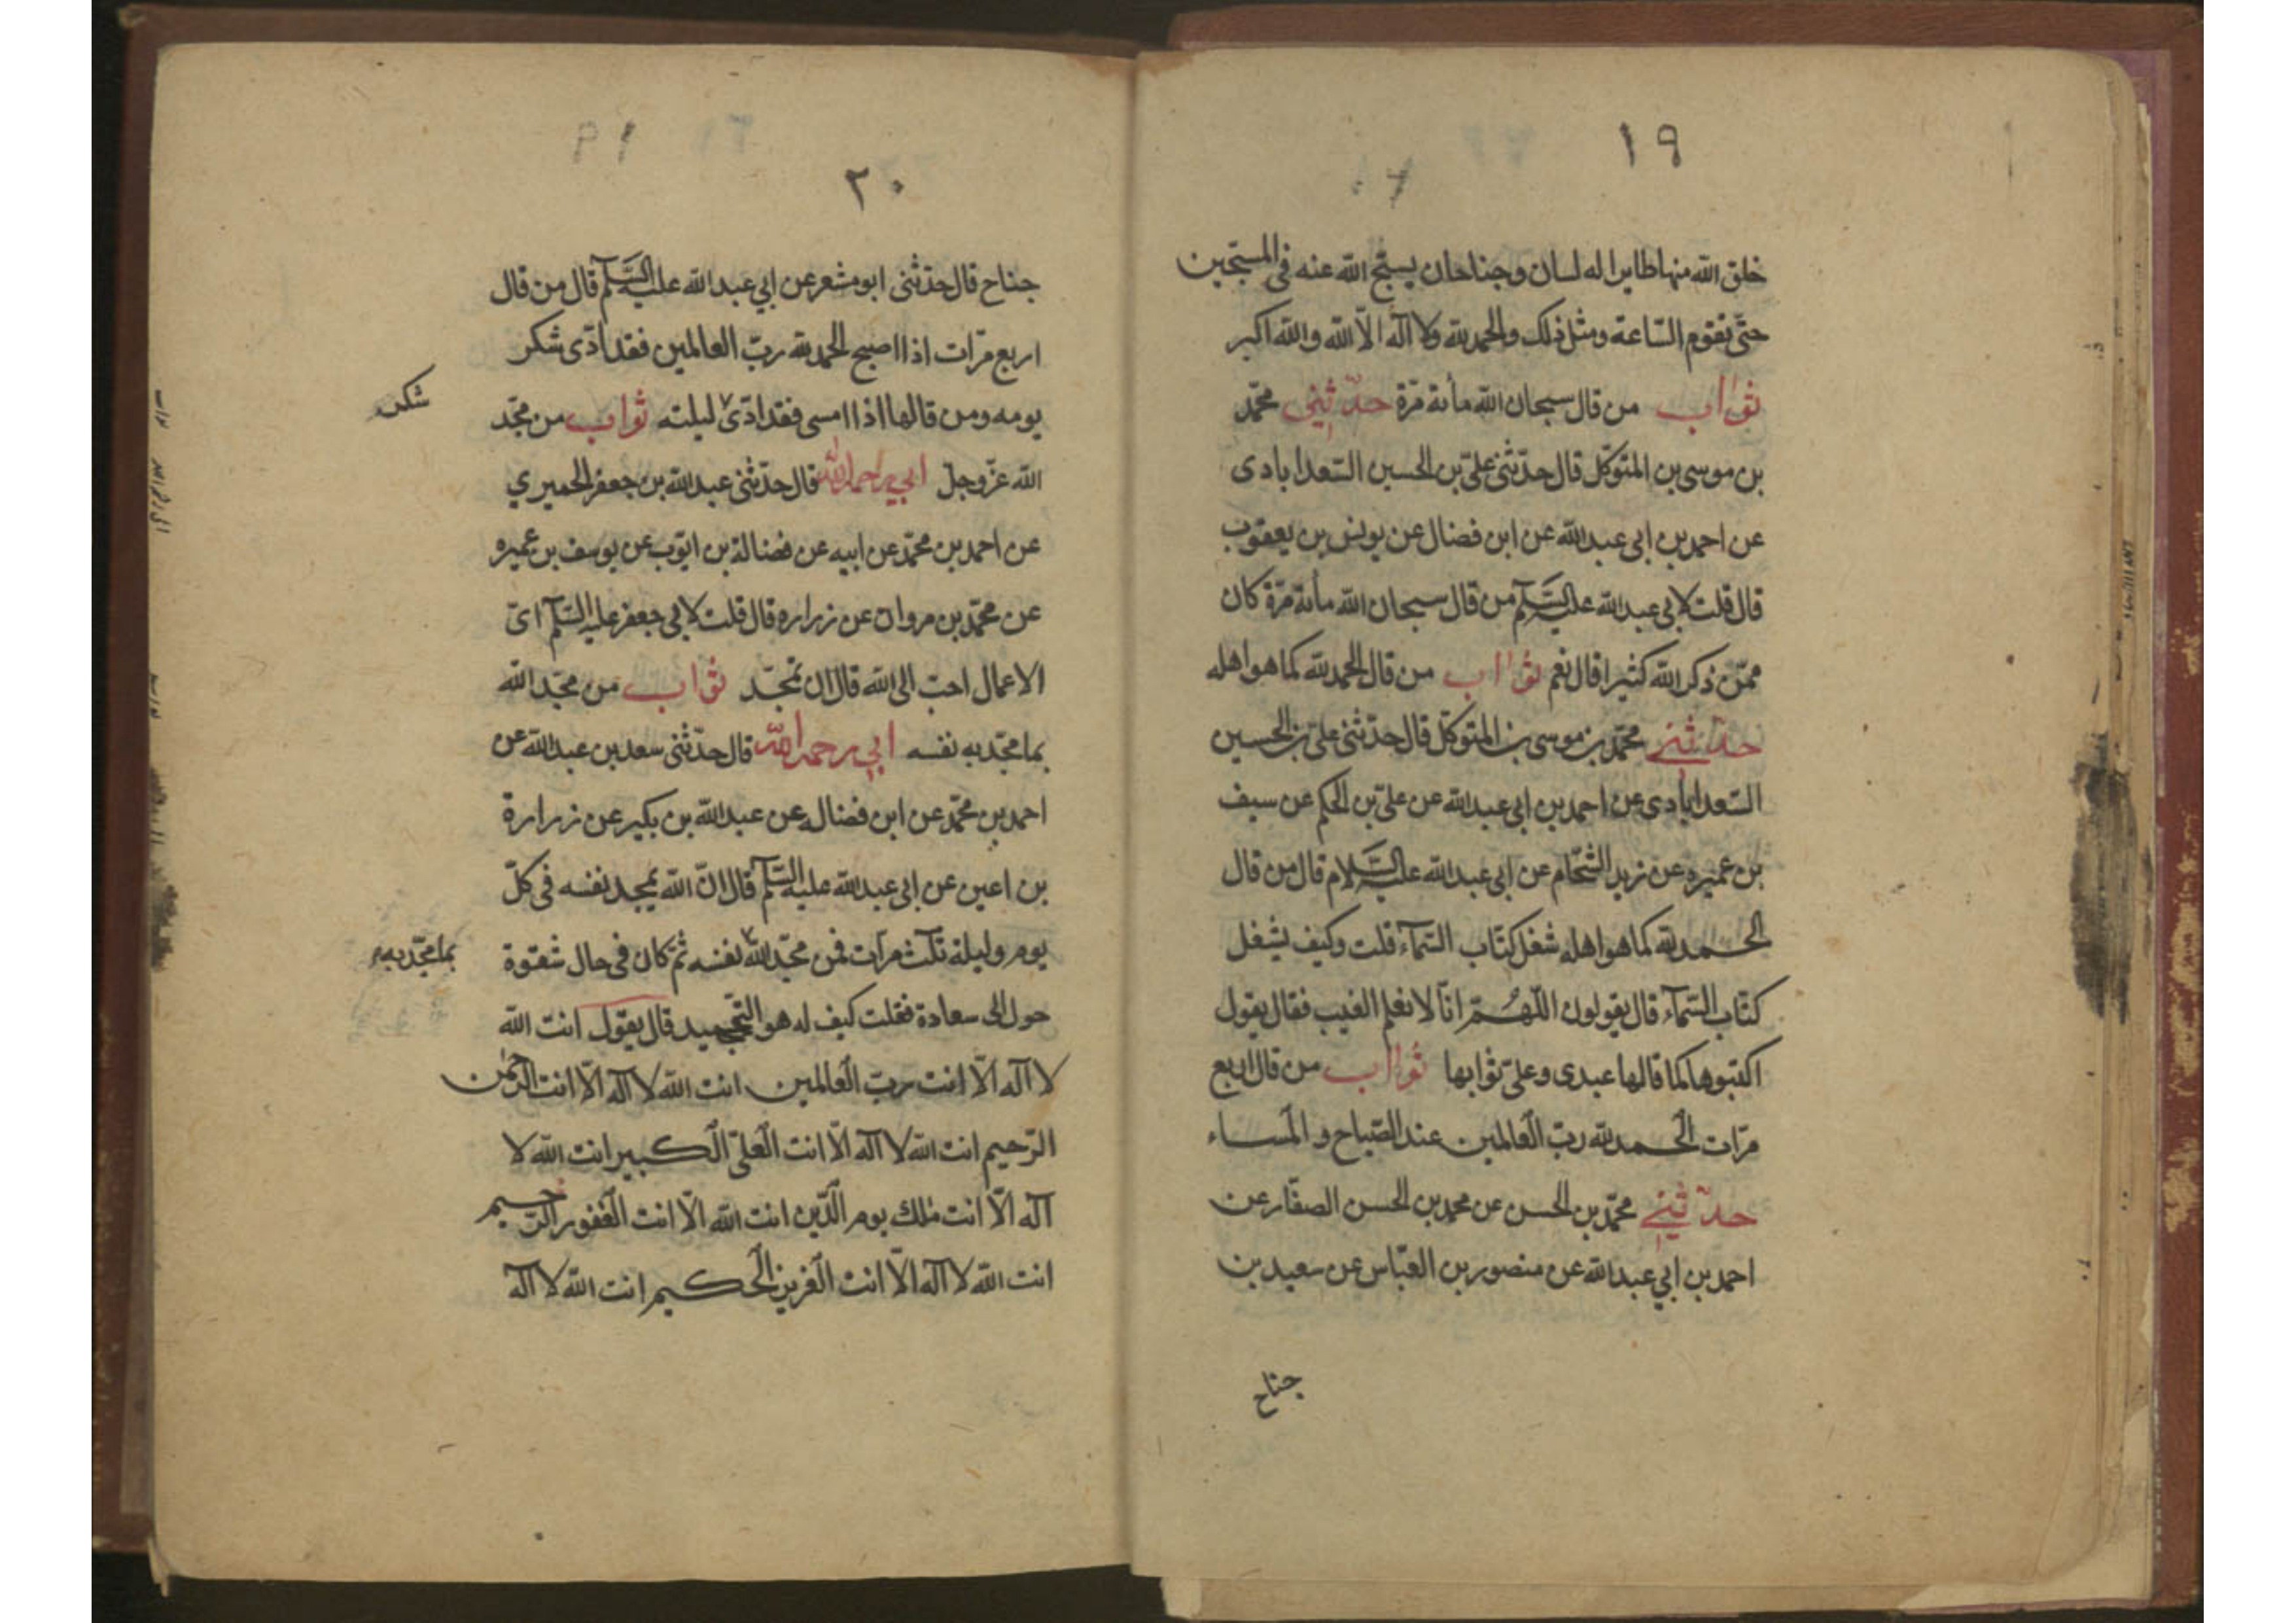 ١٩
خلق الله منها طايرا له لسان وجناحان يسبّح الله عنه فى المسبّحين
حتّى تقوم السّاعة ومثل ذلك والحمد لله ولا اله الّا الله والله اكبر
ثواب من قال سبحان الله مأة مرّة حدّثنى محمّد
بن موسى بن المتوكّل قال حدّثنى علىّ بن الحسين السّعدابادى
عن احمد بن ابى عبد الله عن ابن فضال عن يونس بن يعقوب
قال قلت لابى عبد الله عليه السّلم من قال سبحان الله مأة مرّة كان
ممّن ذكر الله كثيرا قال نعم ثواب من قال الحمد لله كما هو اهله
حدّثنى محمّد بن موسى بن المتوكّل قال حدّثنى علىّ بن الحسين
السّعدابادى عن احمد بن ابى عبد الله عن علىّ بن الحكم عن سيف
بن عميره عن زيد الشّحّام عن ابى عبد الله عليه السّلام قال من قال
الحمد لله كما هو اهله شغل كتّاب السّمآء قلت وكيف يشغل
كتّاب السّمآء قال يقولون اللّهمّ انّا لا نعلم الغيب فقال يقول
اكتبوها كما قالها عبدى وعلىّ ثوابها ثواب من قال اربع
مرّات الحمد لله ربّ العالمين عند الصّباح والمساء
حدّثنى محمّد بن الحسن عن محمد بن الحسن الصفّار عن
احمد بن ابي عبد الله عن منصور بن العبّاس عن سعيد بن
جناح
٢٠
جناح قال حدّثنى ابو مشعر عن ابي عبد الله عليه السّلم قال من قال
اربع مرّات اذا اصبح الحمد لله ربّ العالمين فقد ادّى شكر
يومه ومن قالها اذا امسى فقد ادّى ليلته ثواب من مجّد
شكر
الله عزّوجلّ ابي رحمه الله قال حدّثنى عبد الله بن جعفر الحميري
عن احمد بن محمّد عن ابيه عن فضالة بن ايّوب عن يوسف بن عميره
عن محمّد بن مروان عن زراره قال قلت لابى جعفر عليه السّلم اىّ
الاعمال احبّ الى الله قال ان تمجّد ثواب من مجّد الله
بما مجّد به نفسه ابي رحمه الله قال حدّثنى سعد بن عبد الله عن
احمد بن محمّد عن ابن فضال عن عبد الله بن بكير عن زرارة
بن اعين عن ابى عبد الله عليه السّلم قال انّ الله يمجد نفسه فى كلّ
يوم وليلة ثلث مرّات فمن مجّد الله نفسه ثمّ كان فى حال شقوة
بما مجّد به
حول الى سعادة فقلت كيف له هو التّمجيد قال يقول انت الله
لا اله الّا انت ربّ العالمين انت الله لا اله الّا انت الرّحمن
الرّحيم انت الله لا اله الّا انت العلىّ الكبير انت الله لا
اله الّا انت ملك يوم الدّين انت الله الّا انت الغفور الرّحيم
انت الله لا اله الّا انت العزيز الحكيم انت الله لا اله